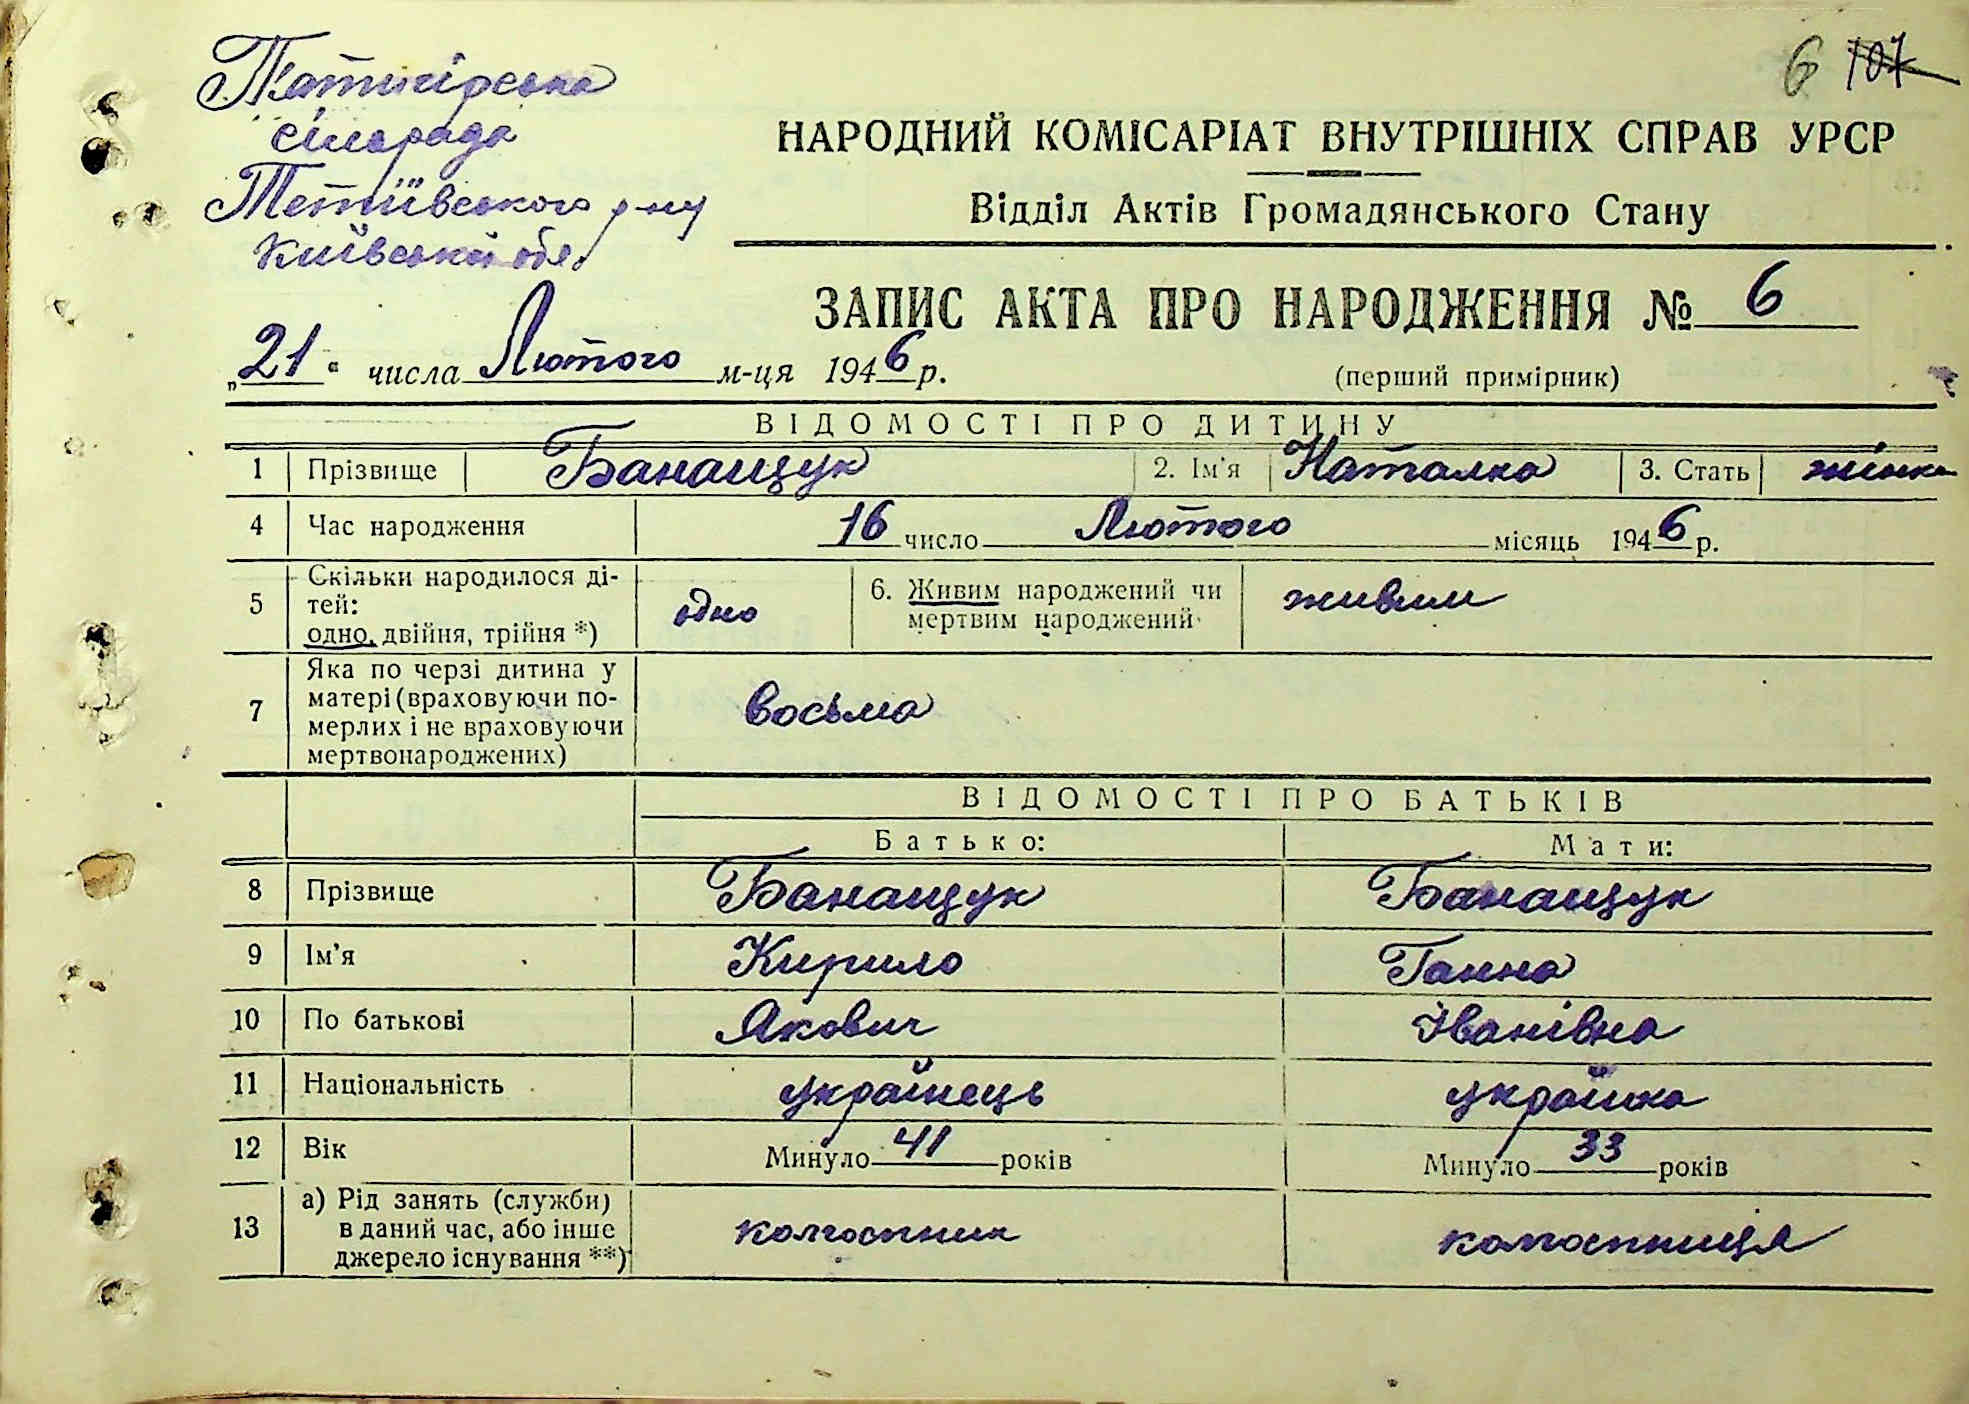 6 107
П'ятигірська
сільрада
Тетіївського р-ну
Київської обл.
НАРОДНИЙ КОМІСАРІАТ ВНУТРІШНІХ СПРАВ УРСР
Відділ Актів Громадянського Стану
ЗАПИС АКТА ПРО НАРОДЖЕННЯ № 6
„21“ числа Лютого м-ця 1946 р.
(перший примірник)
ВІДОМОСТІ ПРО ДИТИНУ
1 Прізвище Банащук 2. Ім'я Наталка 3. Стать жінка
4 Час народження 16 число Лютого місяць 1946 р.
5 Скільки народилося ді-
тей:
одно, двійня, трійня *) одно
6. Живим народжений чи
мертвим народжений живим
7 Яка по черзі дитина у
матері (враховуючи по-
мерлих і не враховуючи
мертвонароджених) восьма
ВІДОМОСТІ ПРО БАТЬКІВ
Батько: Мати:
8 Прізвище Банащук Банащук
9 Ім'я Кирило Ганна
10 По батькові Якович Іванівна
11 Національність українець українка
12 Вік Минуло 41 років Минуло 33 років
13 а) Рід занять (служби)
в даний час, або інше
джерело існування **) колгоспник колгоспниця